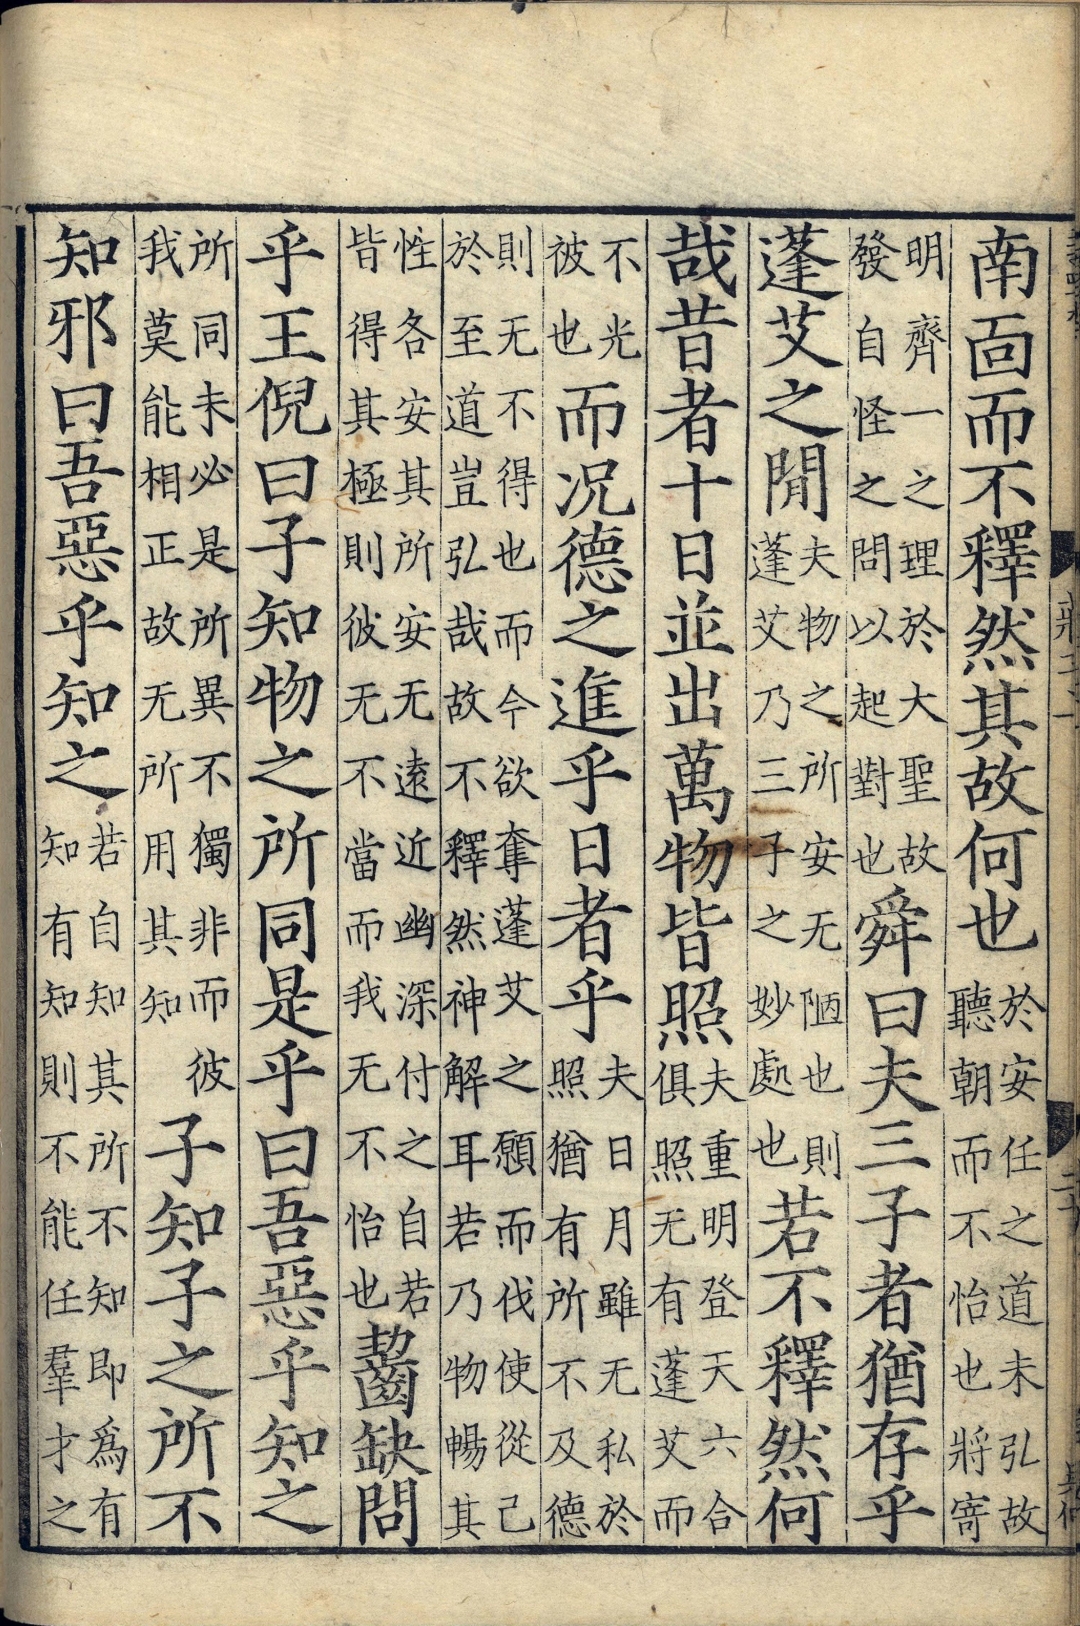 南靣而不釋然其故何也於安任之道未弘故聽朝而不怡也將寄
明齊一之理於大聖故發自怪之問以起對也舜曰夫三子者猶存乎
蓬艾之閒夫物之所安无陋也則蓬艾乃三子之妙處也若不釋然何
哉昔者十日並出萬物皆照夫重明登天六合俱照无有蓬艾而
不光被也而况德之進乎日者乎夫日月雖无私於照猶有所不及德
則无不得也而今欲奪蓬艾之願而伐使從己於至道豈弘哉故不釋然神解耳若乃物暢其
性各安其所安无遠近幽深付之自若皆得其極則彼无不當而我无不怡也齧缺問
乎王倪曰子知物之所同是乎曰吾惡乎知之
所同未必是所異不獨非而彼我莫能相正故无所用其知子知子之所不
知邪曰吾惡乎知之若自知其所不知即爲有知有知則不能任羣才之